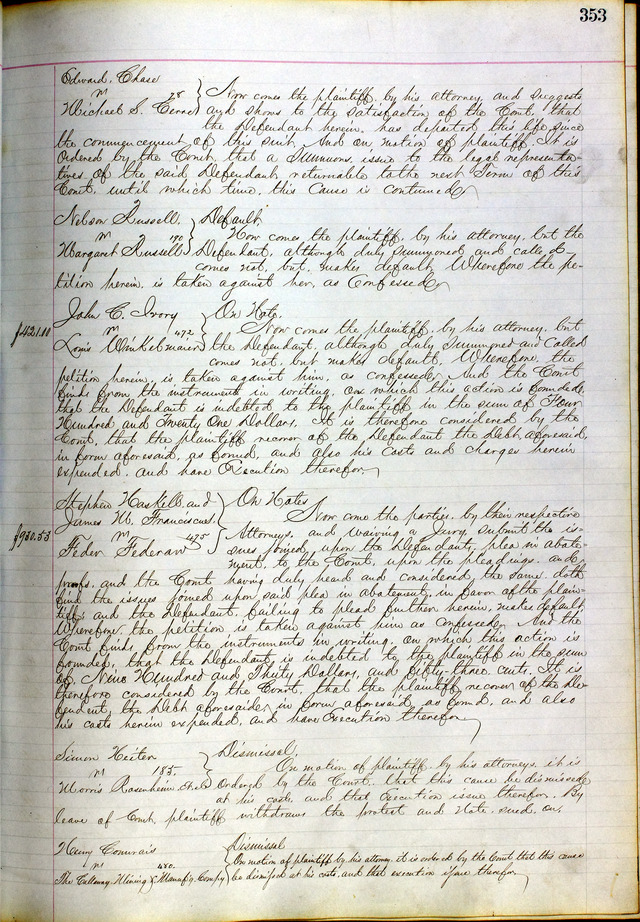 353
Edward Chase
vs 78 } Now comes the plaintiff, by his attorney, and suggests
Michael S. Cerre and shows to the satisfaction of the Court, that
the Defendant herein, has departed this life since
the commencement of this suit. And on motion of plaintiff, It is
Ordered by the Court, that a Summons, issue to the legal representa-
tives of the said Defendant, returnable to the next Term of this
Court, until which time, this Cause is continued
Nelson Russell } Default
vs 170 Now comes the plaintiff, by his attorney, but the
Margaret Russell Defendant, although duly summoned and called
comes not, but makes default, Wherefore the pe-
tition herein, is taken against her, as Confessed
John C. Ivory } On Note.
$421.00 vs 472 Now comes the plaintiff, by his attorney, but
Louis Winkelmaier the Defendant, although duly summoned and called
comes not, but makes default, Wherefore, the
petition herein, is taken against him, as confessed, And the Court
finds from the instrument in writing, on which this action is founded,
that the Defendant is indebted to the plaintiff in the sum of Four
Hundred and Twenty One Dollars, It is therefore considered by the
Court, that the plaintiff recover of the Defendant the debt aforesaid,
in form aforesaid, as found, and also his costs and charges herein
expended, and have Execution therefor
Stephen Haskell and } On Notes
James W. Franciscus Now come the parties, by their respective
$930.53 vs 475 Attorneys, and waiving a Jury, submit the is-
Feder Federan sues joined, upon the Defendants, plea in abate-
ment, to the Court, upon the pleadings and
proofs, and the Court having duly heard and considered, the same, doth
find the issues joined upon said plea in abatement, in favor of the plain-
tiffs and the Defendant, failing to plead further herein, makes default,
Wherefore, the petition, is taken against him as Confessed, And the
Court finds from the instruments in writing, on which this action is
founded, that the Defendant is indebted to the plaintiff in the sum
of, Nine Hundred and Thirty Dollars, and fifty-three cents, It is
therefore considered by the Court, that the plaintiff, recover of the De-
fendent, the Debt aforesaid, in form aforesaid, as found, and also
his costs herein expended, and have Execution therefor
Simon Heiter } Dismissal.
vs 185. On motion of plaintiff by his attorneys, it is
Morris Rosenheim et al Ordered by the Court, that this cause be dismissed
at his costs, and that Execution issue therefor. By
leave of Court, plaintiff withdraws the protest and Note, sued, on.
Henry } Dismissal
vs 480. On motion of plaintiff, by his attorney, it is ordered by the Court that this cause
The Callaway Mining & Manufg. Compy be dismissed at his costs, and that execution issue therefor